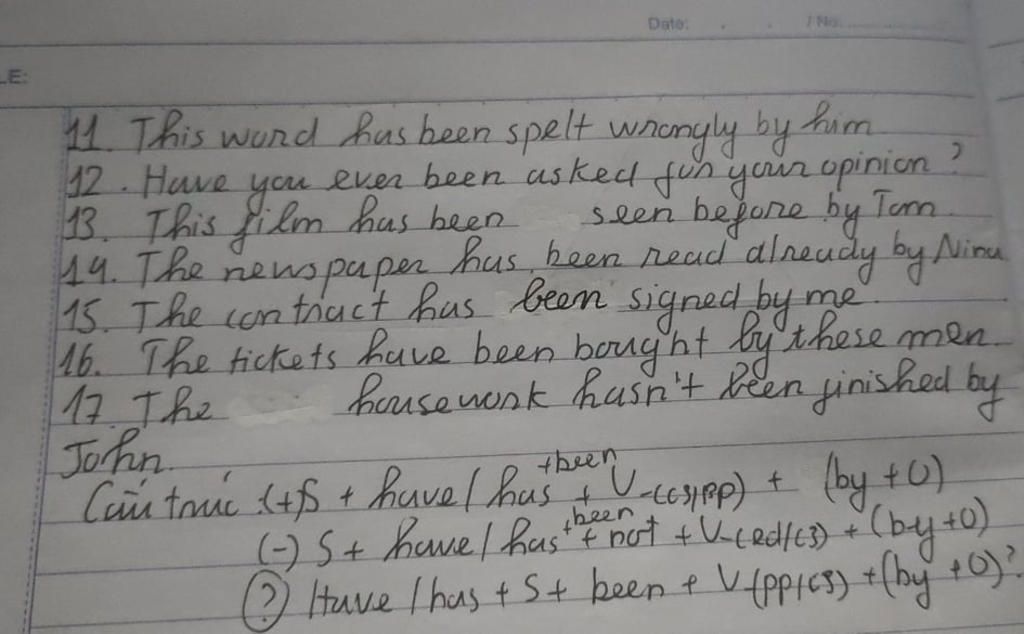 Date: . . / No.
LE:
11. This word has been spelt wrongly by him
12. Have you ever been asked for your opinion?
13. This film has been seen before by Tom.
14. The newspaper has been read already by Nina
15. The contract has been signed by me.
16. The tickets have been bought by these men.
17. The housework hasn't been finished by
John.
+been
Cấu trúc :(+)S + have / has + V-(C3/PP) + (by + O)
+been
(-) S + have / has + not + V-(ed/C3) + (by + O)
(?) Have / has + S + been + V-(PP/C3) + (by + O)?